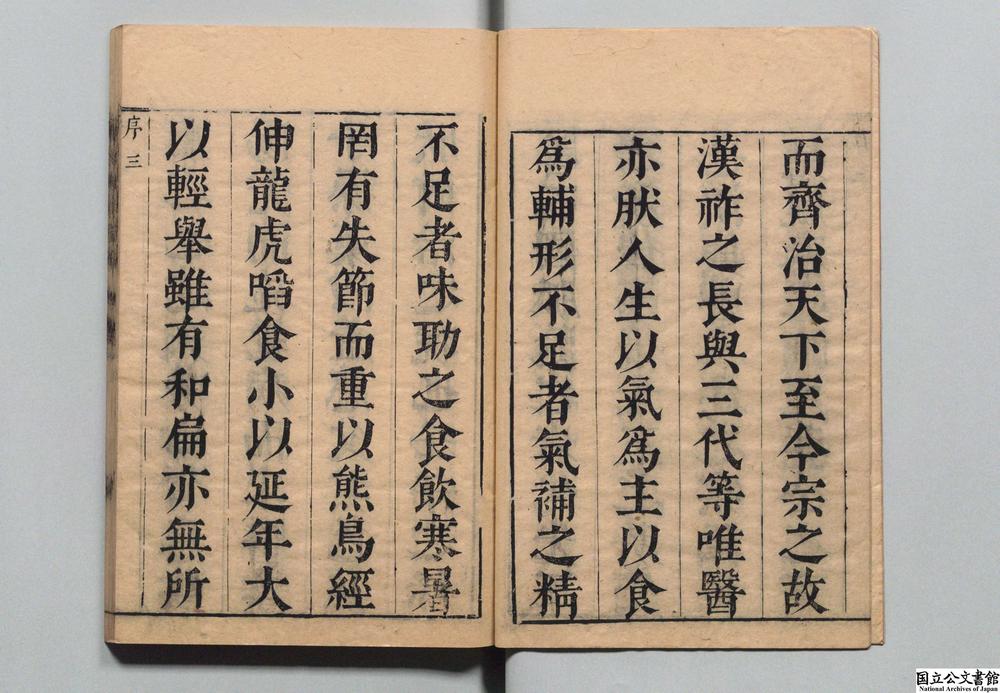 而齊治天下至今宗之故
漢祚之長與三代等唯醫
亦肰人生以氣爲主以食
爲輔形不足者氣補之精
不足者味助之食飲寒暑
罔有失節而重以熊鳥經
伸龍虎啗食小以延年大
以輕舉雖有和扁亦無所
序 三
国立公文書館
National Archives of Japan